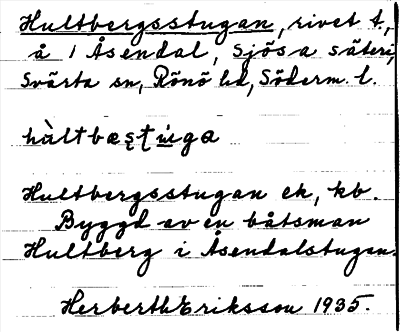 Hultbergsstugan, rivet t.,
å 1 Åsendal, Sjösa säteri,
Svärta sn, Rönö hd, Söderm. l.
hùltbæʂʈúga
Hultbergsstugan ek, kb.
Byggd av en båtsman
Hultberg i Åsendalstugan.
Herberth Eriksson 1935.